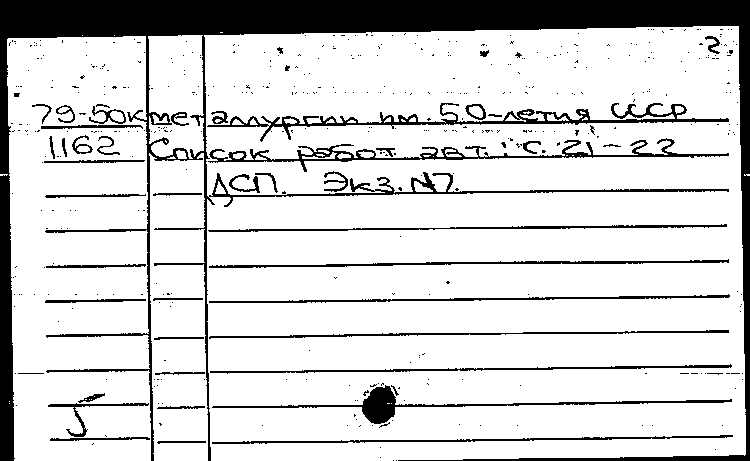 2
79-50к металлургии им. 50-летия СССР
1162 Список работ авт.: с. 21-22
ДСП. Экз. №7.
5